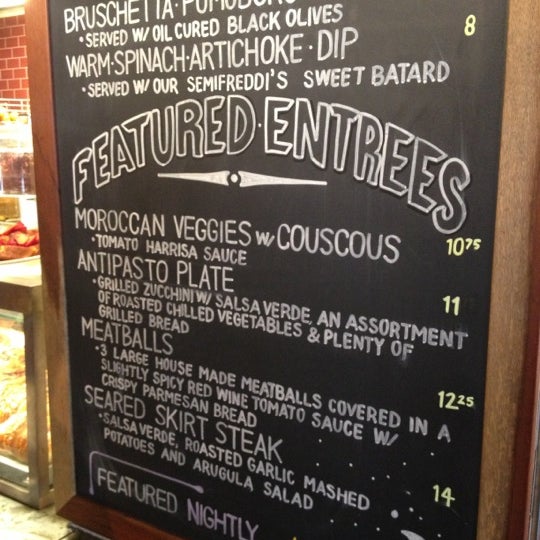 BRUSCHETTA · POMODORO
· SERVED W/ OIL CURED BLACK OLIVES 8
WARM · SPINACH · ARTICHOKE · DIP
· SERVED W/ OUR SEMIFREDDI'S SWEET BATARD
FEATURED · ENTREES
MOROCCAN VEGGIES W/ COUSCOUS 10 75
· TOMATO HARRISA SAUCE
ANTIPASTO PLATE 11
· GRILLED ZUCCHINI W/ SALSA VERDE, AN ASSORTMENT
OF ROASTED CHILLED VEGETABLES & PLENTY OF
GRILLED BREAD
MEATBALLS 12 25
· 3 LARGE HOUSE MADE MEATBALLS COVERED IN A
SLIGHTLY SPICY RED WINE TOMATO SAUCE W/
CRISPY PARMESAN BREAD
SEARED SKIRT STEAK 14
· SALSA VERDE, ROASTED GARLIC MASHED
POTATOES AND ARUGULA SALAD
FEATURED NIGHTLY